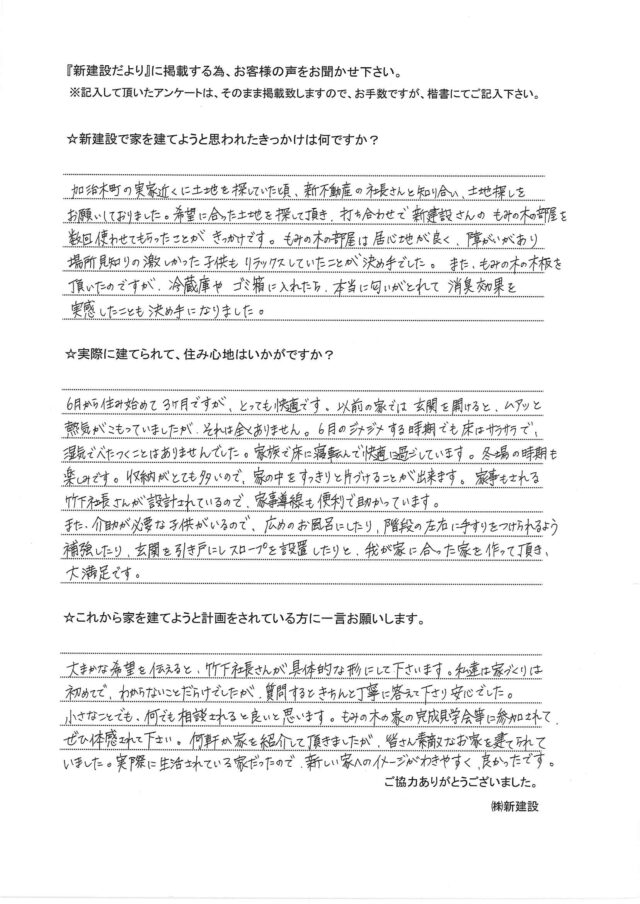 『新建設だより』に掲載する為、お客様の声をお聞かせ下さい。
※記入して頂いたアンケートは、そのまま掲載致しますので、お手数ですが、楷書にてご記入下さい。
☆新建設で家を建てようと思われたきっかけは何ですか？
加治木町の実家近くに土地を探していた頃、新不動産の社長さんと知り合い、土地探しを
お願いしておりました。希望に合った土地を探して頂き、打ち合わせで新建設さんのもみの木の部屋を
数回使わせてもらったことがきっかけです。もみの木の部屋は居心地が良く、障がいがあり
場所見知りの激しかった子供もリラックスしていたことが決め手でした。また、もみの木の木板を
頂いたのですが、冷蔵庫やゴミ箱に入れたら、本当に匂いがとれて消臭効果を
実感したことも決め手になりました。
☆実際に建てられて、住み心地はいかがですか？
6月から住み始めて3ヶ月ですが、とっても快適です。以前の家では玄関を開けると、ムアッと
熱気がこもっていましたが、それは全くありません。6月のジメジメする時期でも床はサラサラで、
湿気でべたつくことはありませんでした。家族で床に寝転んで快適に過ごしています。冬場の時期も
楽しみです。収納がとても多いので、家の中をすっきりと片づけることが出来ます。家事もされる
竹下社長さんが設計されているので、家事導線も便利で助かっています。
また、介助が必要な子供がいるので、広めのお風呂にしたり、階段の左右に手すりをつけられるよう
補強したり、玄関を引き戸にしスロープを設置したりと、我が家に合った家を作って頂き、
大満足です。
☆これから家を建てようと計画をされている方に一言お願いします。
大まかな希望を伝えると、竹下社長さんが具体的な形にして下さいます。私達は家づくりは
初めてで、わからないことだらけでしたが、質問するときちんと丁寧に答えて下さり安心でした。
小さなことでも、何でも相談されると良いと思います。もみの木の家の完成見学会等に参加されて、
ぜひ体感されて下さい。何軒か家を紹介して頂きましたが、皆さん素敵なお家を建てられて
いました。実際に生活されている家だったので、新しい家へのイメージがわきやすく、良かったです。
ご協力ありがとうございました。
㈱新建設